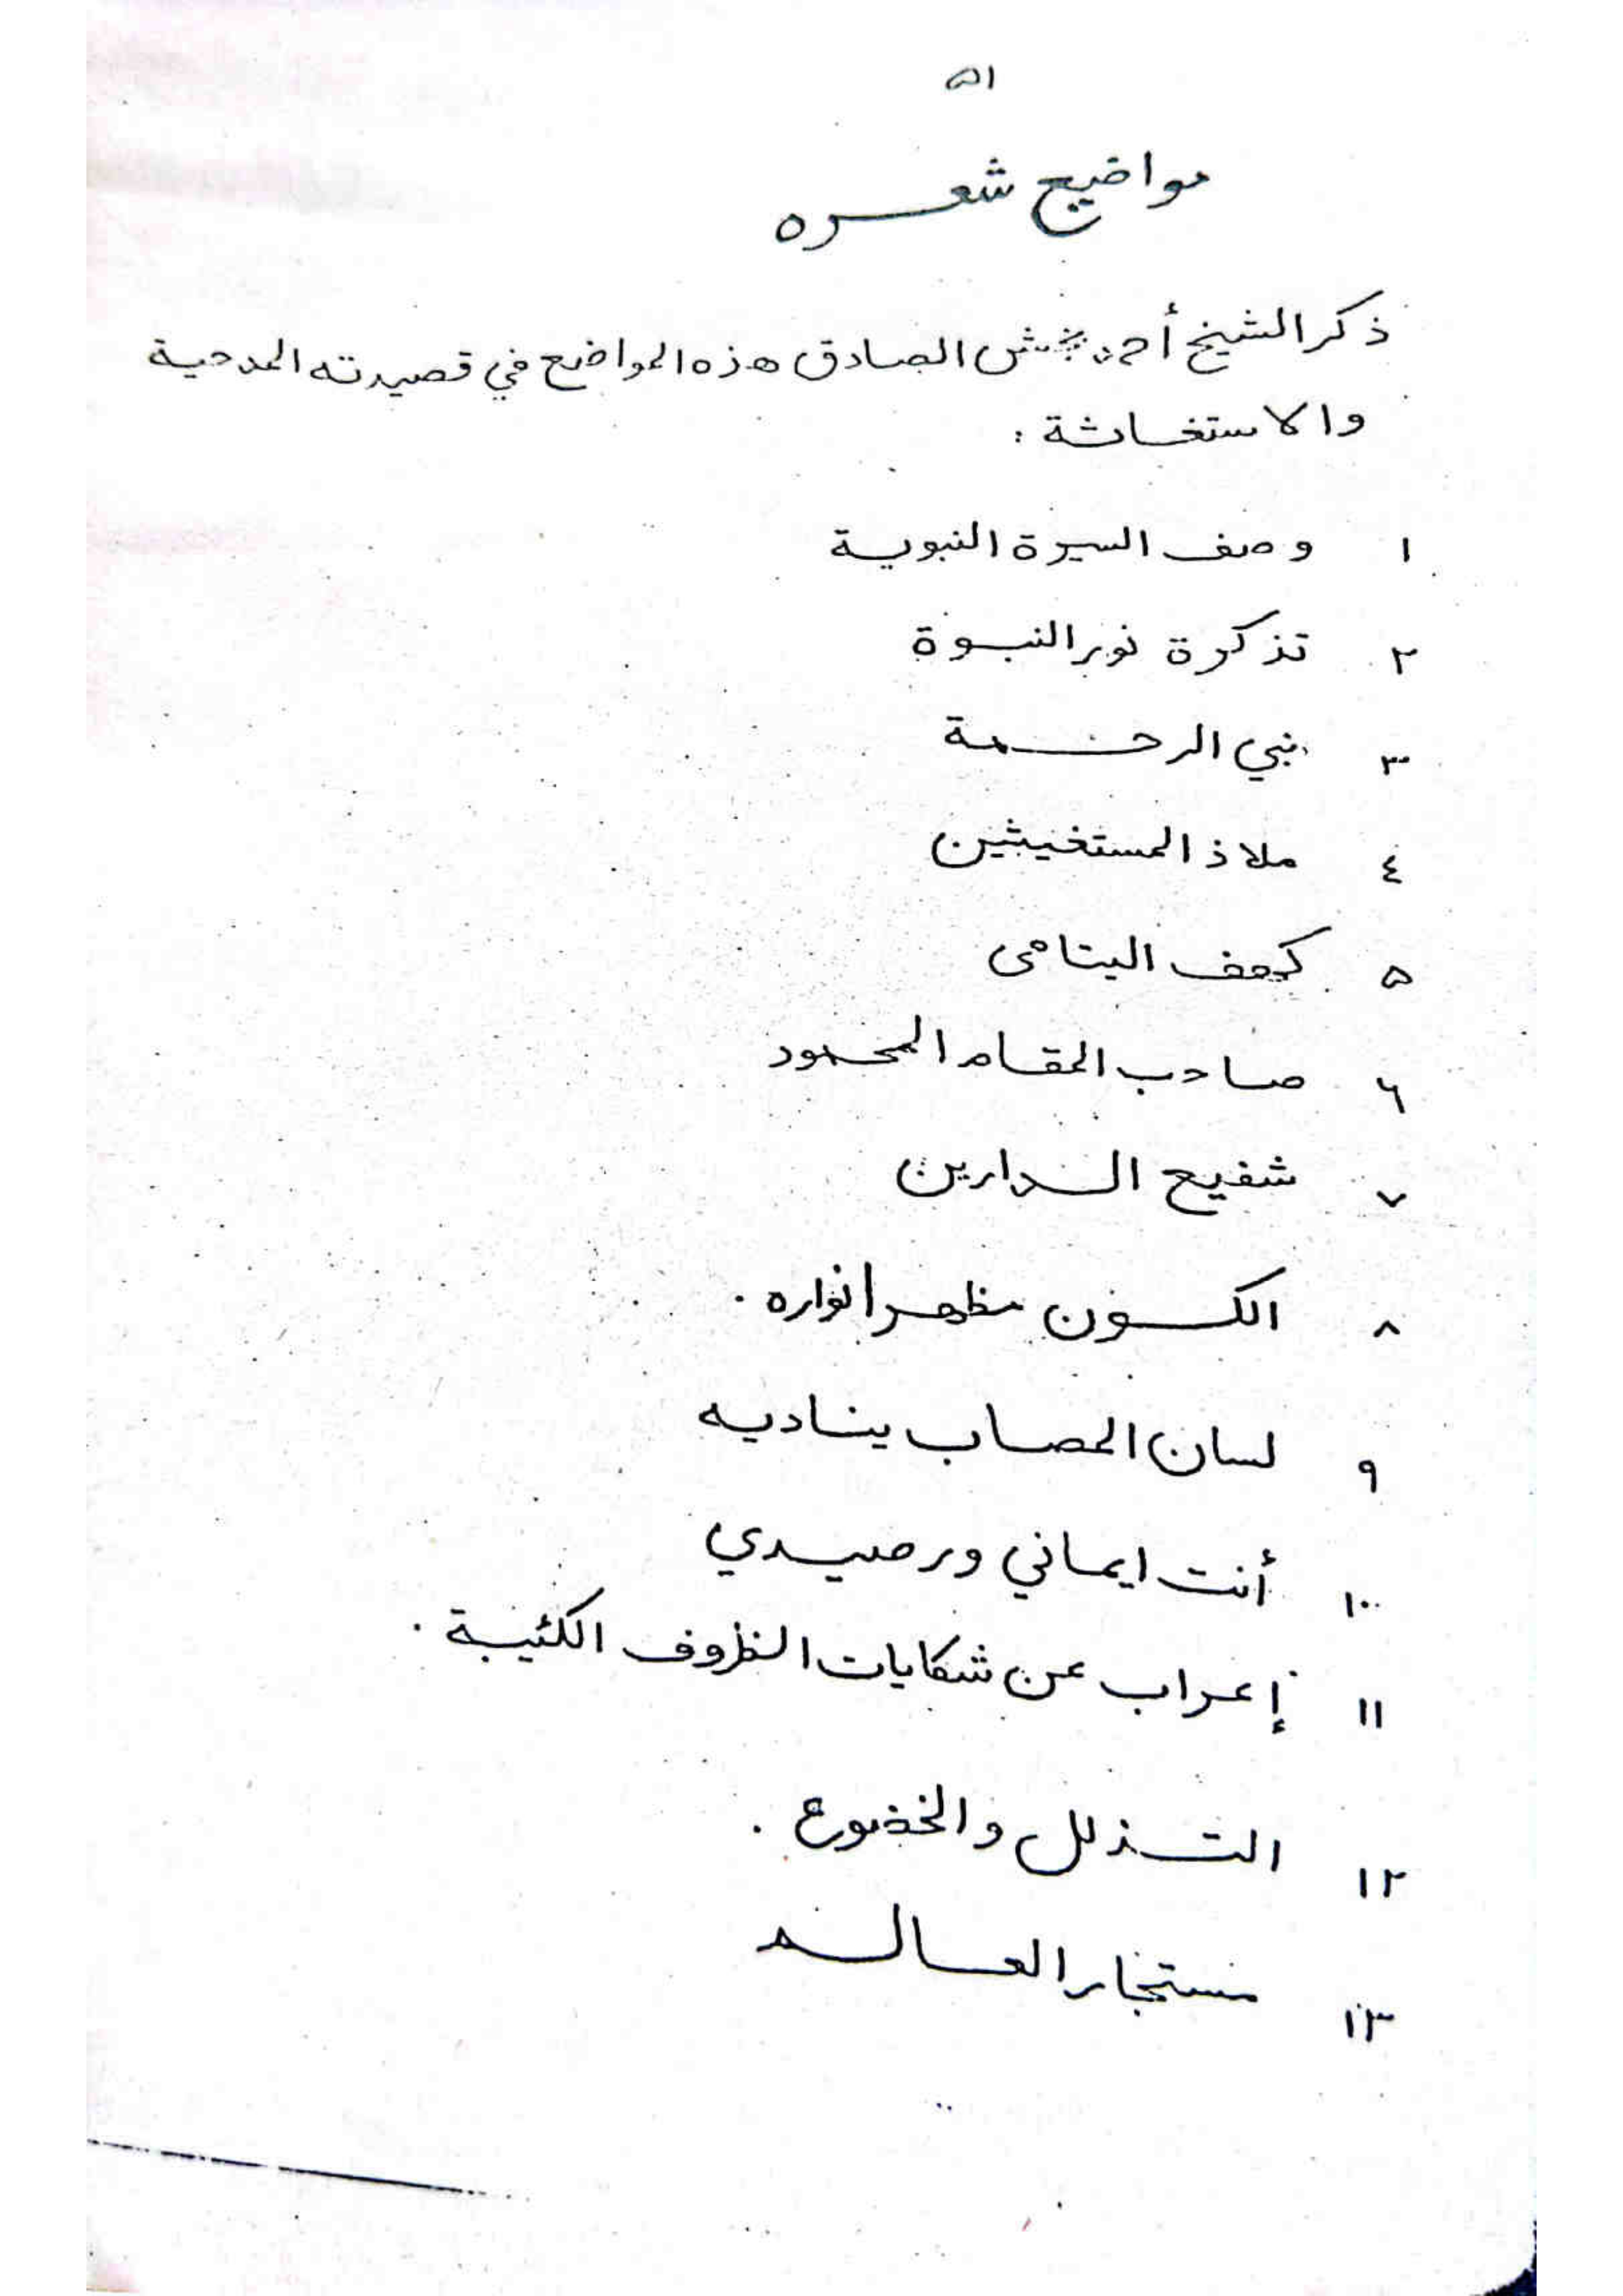 ٥١
مواضيع شعره
ذكر الشيخ أحمد بخش الصادق هذه المواضع في قصيدته المدحية
والاستغاثة :
١ وصف السيرة النبوية
٢ تذكرة نور النبوة
٣ نبي الرحمة
٤ ملاذ المستغيثين
٥ كهف اليتامى
٦ صاحب المقام المحمود
٧ شفيع الدارين
٨ الكون مظهر انواره .
٩ لسان الحصاب يناديه
١٠ أنت ايماني ورصيدي
١١ إعراب عن شكايات الظروف الكئيبة .
١٢ التذلل والخضوع .
١٣ مستجار العالم